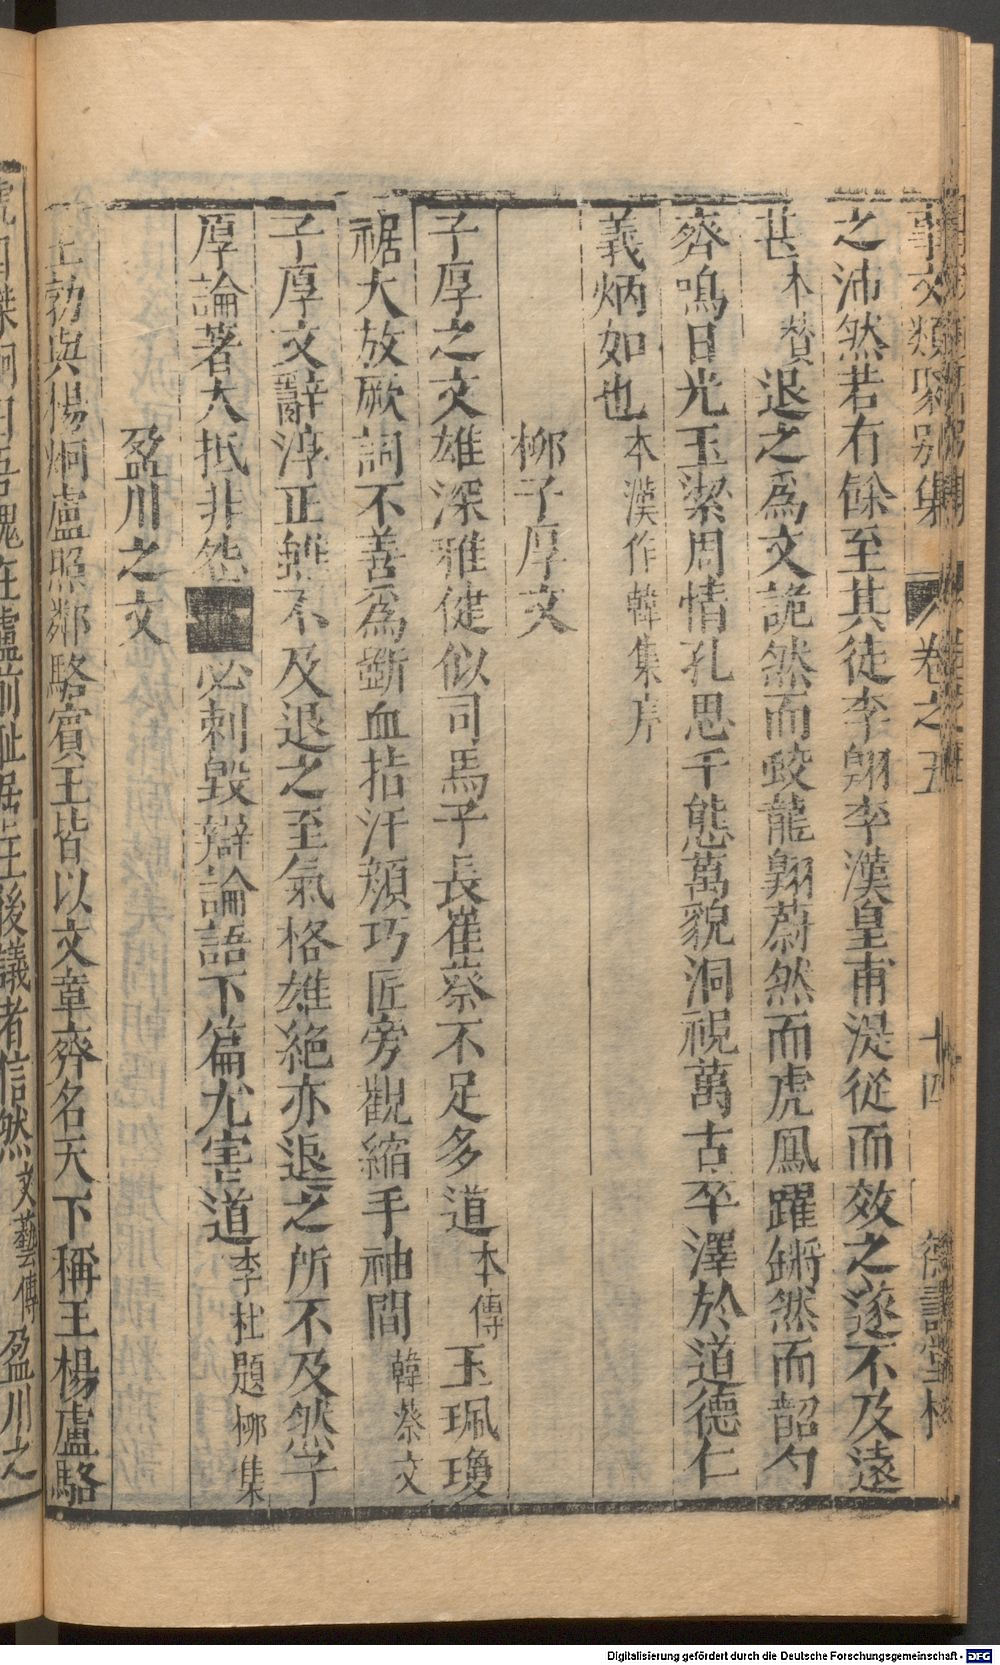 事文類聚別集 卷之五 十四 德壽堂梓
之沛然若有餘至其徒李翺李漢皇甫湜從而效之遂不及遠
甚本贊退之爲文詭然而蛟龍翺蔚然而虎鳳躍鏘然而韶勺
齊鳴日光玉潔周情孔思千態萬貌洞視萬古卒澤於道德仁
義炳如也本漢作韓集序
柳子厚文
子厚之文雄深雅健似司馬子長崔蔡不足多道本傳玉珮瓊
裾大放厥詞不善爲斲血指汗顏巧匠旁觀縮手袖間韓蔡文
子厚文辭淳正雖不及退之至氣格雄絶亦退之所不及然子
厚論著大抵非怨必刺毀辯論語下篇尤害道李杜題柳集
盈川之文
王勃與楊烱盧照鄰駱賓王皆以文章齊名天下稱王楊盧駱
號四傑烱曰吾愧在盧前恥居王後議者信然文藝傳盈川之
Digitalisierung gefördert durch die Deutsche Forschungsgemeinschaft - DFG